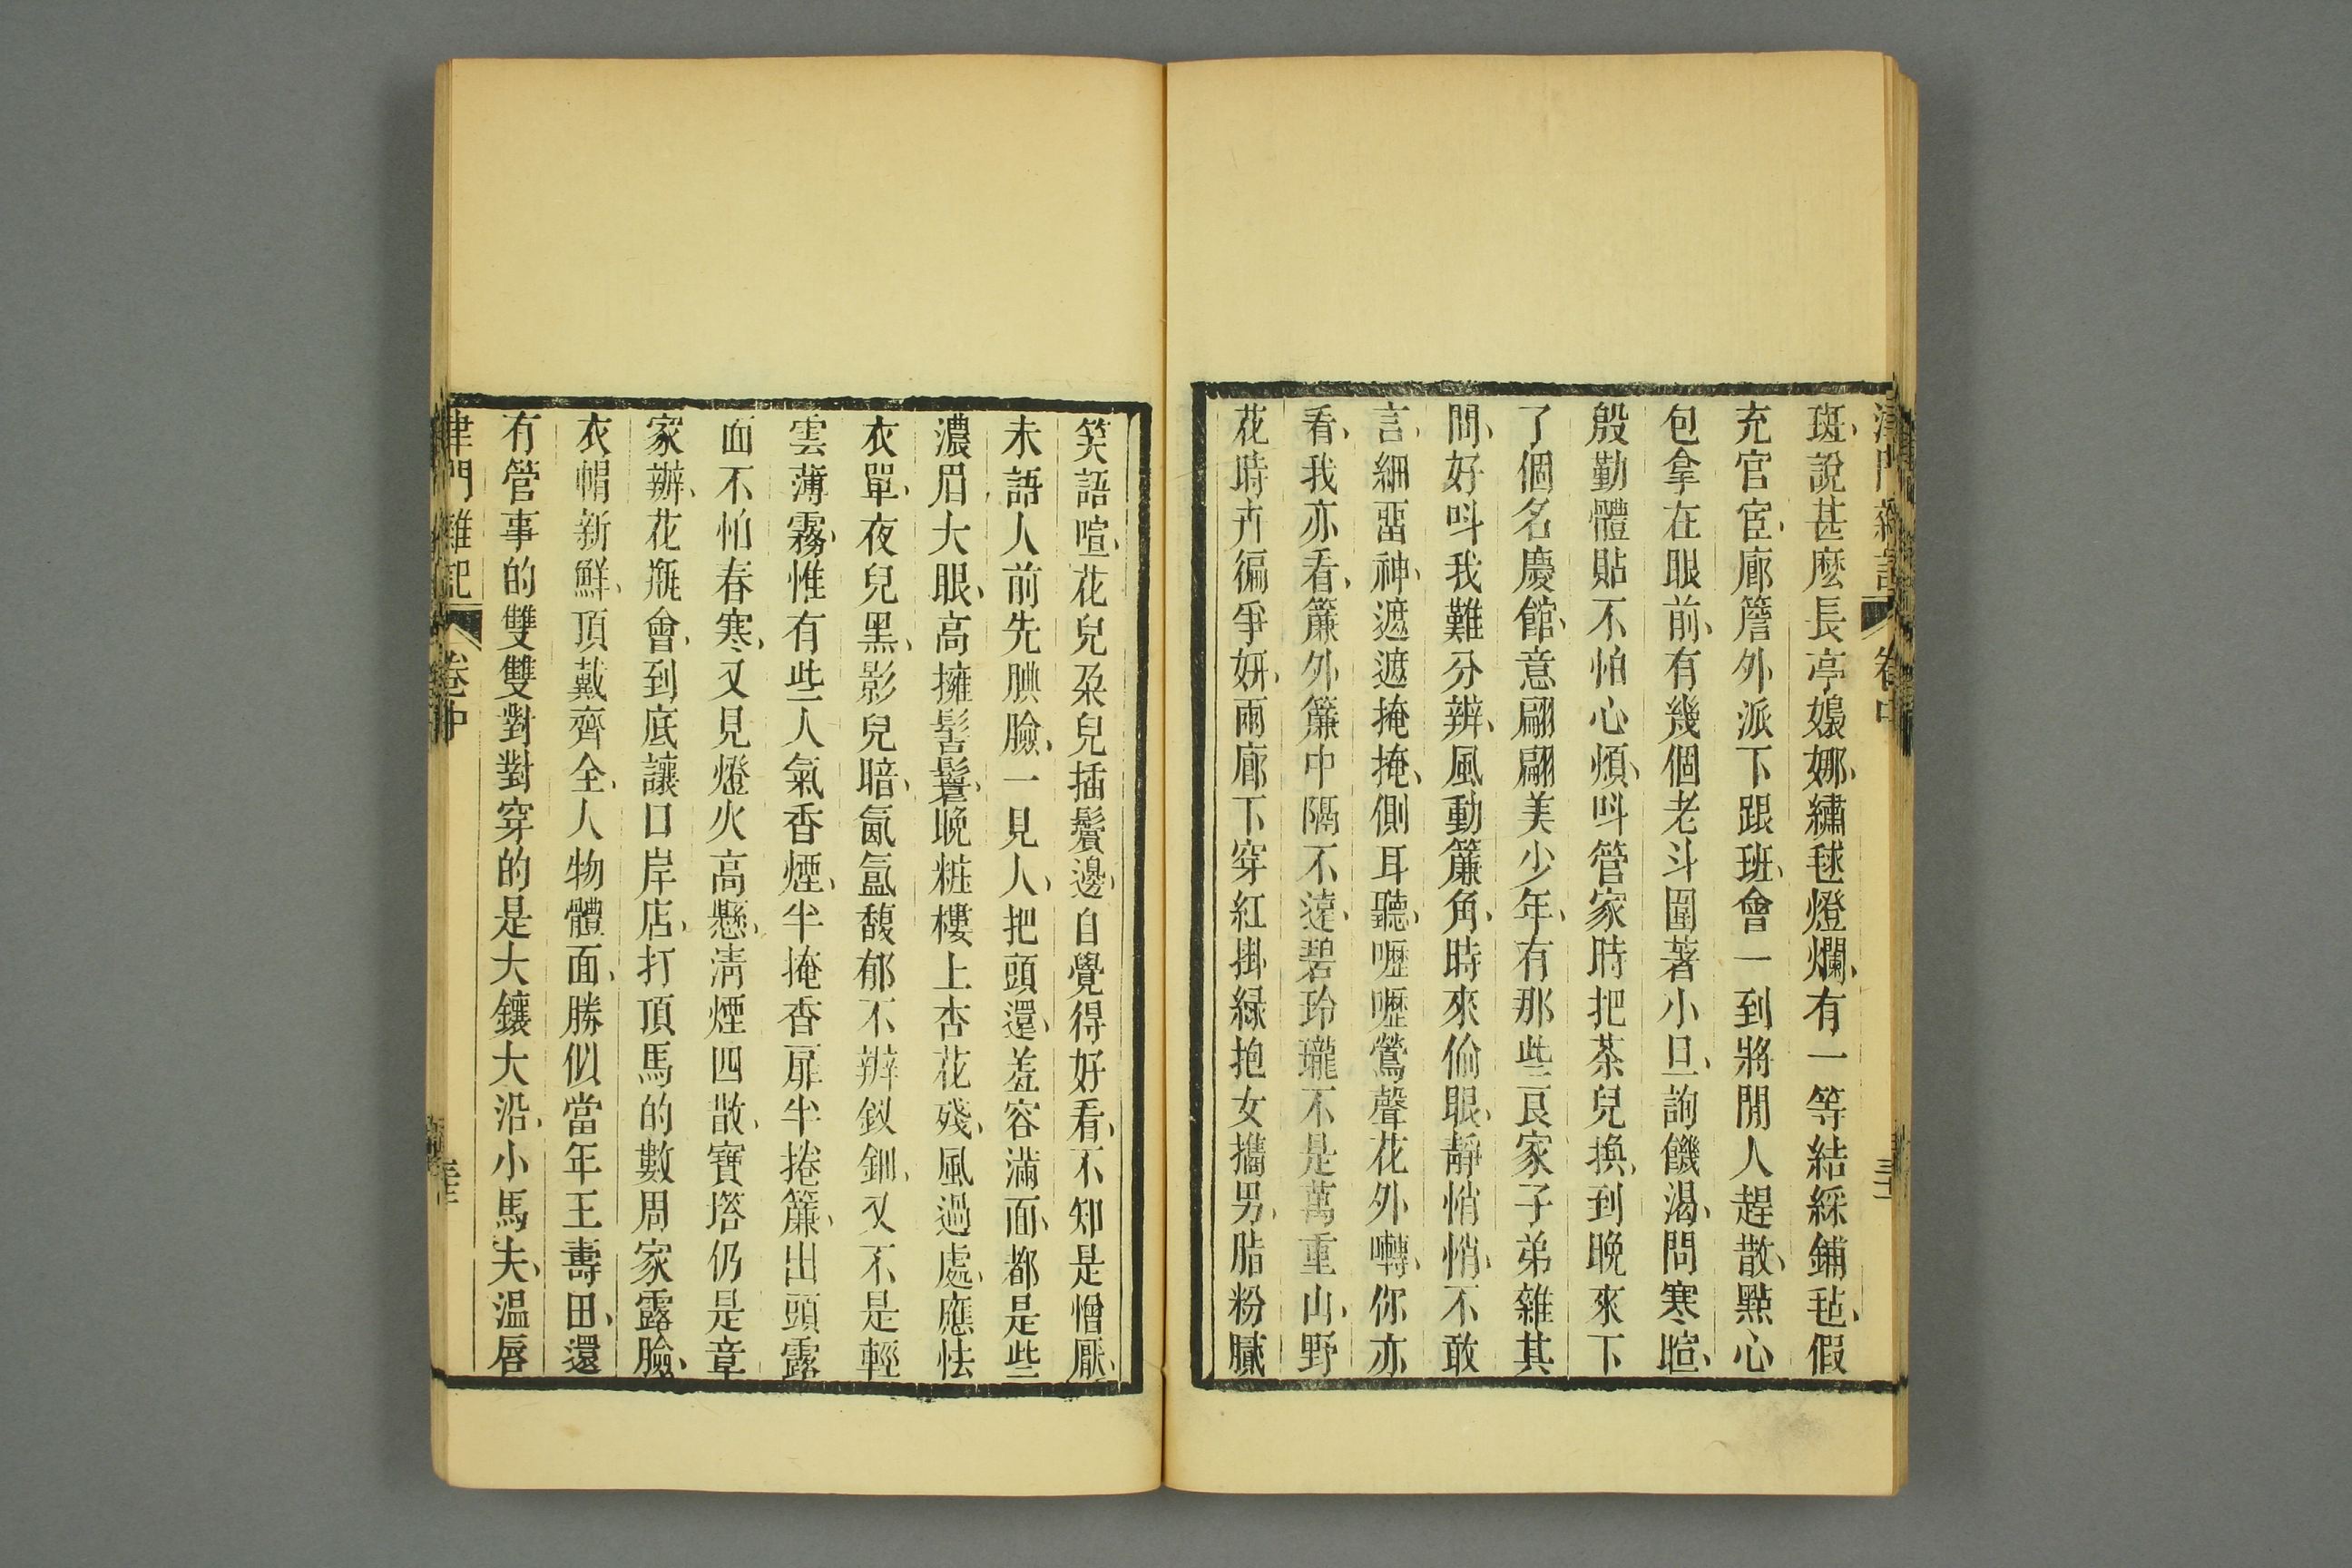 津門雜記 卷中 三十
斑、說甚麽長亭嬝娜、繡毬燈爛、有一等結綵鋪毡、假
充官宦、廊簷外派下跟班、會一到將閒人趕散、點心
包拿在眼前、有幾個老斗圍著小旦、詢饑渴、問寒暄、
殷勤體貼不怕心煩、呌管家時把茶兒換、到晚來下
了個名慶館、意翩翩美少年、有那些良家子弟雜其
間、好呌我難分辨、風動簾角、時來偷眼、靜悄悄、不敢
言、細畱神、遮遮掩掩、側耳聽、嚦嚦鶯聲花外囀、你亦
看、我亦看、簾外簾中隔不遠、碧玲瓏不是萬重山、野
花時卉徧爭妍、兩廊下穿紅掛綠抱女攜男、脂粉膩
笑語喧、花兒朶兒插鬢邊、自覺得好看、不知是憎厭、
未語人前先腆臉、一見人、把頭還、羞容滿面、都是些
濃眉大眼、高擁髻鬟、晚粧樓上杏花殘、風過處、應怯
衣單、夜兒黑、影兒暗、氤氳馥郁不辨釵鈿、又不是輕
雲薄霧、惟有些人氣香煙、半掩香扉半捲簾、出頭露
面不怕春寒、又見燈火高懸、清煙四散、寶塔仍是章
家辦、花瓶會、到底讓口岸店、打頂馬的數周家露臉、
衣帽新鮮、頂戴齊全、人物體面、勝似當年王壽田、還
有管事的雙雙對對穿的是大鑲大沿、小馬夫、温唇
津門雜記 卷中